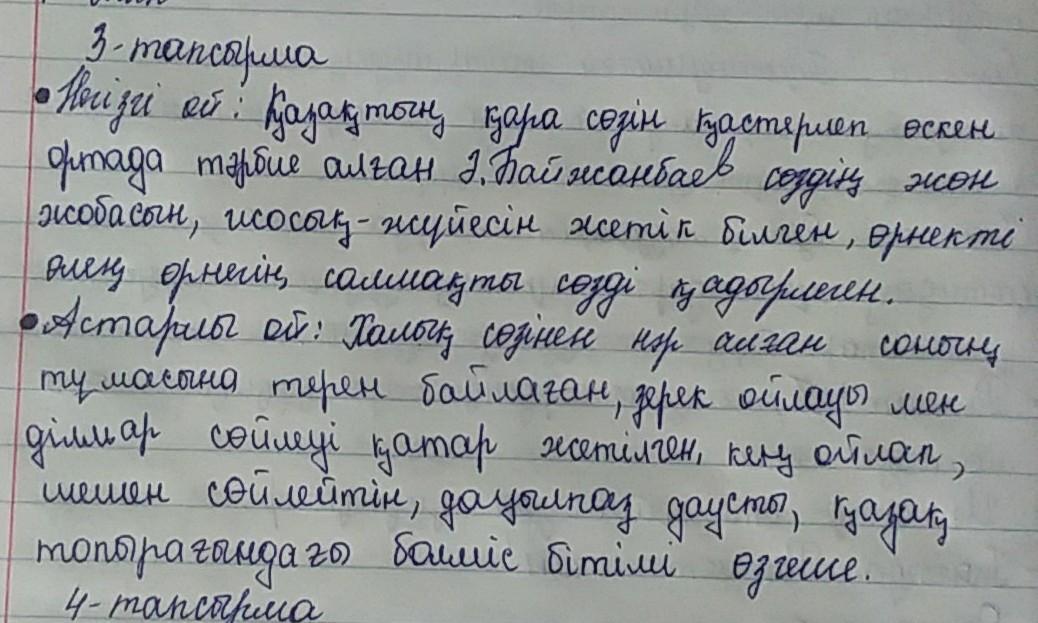 3-тапсырма
•Негізгі ой: Қазақтың қара сөзін қастерлеп өскен
ортада тәрбие алған Ә. Байжанбаев сөздің жөн
жобасын, исосық-жүйесін жетік білген, өрнекті
өлең өрнегін, салмақты сөзді қадырлеген.
•Астарлы ой: Халық сөзінен нәр алған соның
тұмасына терең байлаған, зерек ойлауы мен
ділмар сөйлеуі қатар жетілген, кең ойлап,
шешен сөйлейтін, дауылпаз даусты, қазақ
топырағындағы болмыс бітімі өзгеше.
4-тапсырма